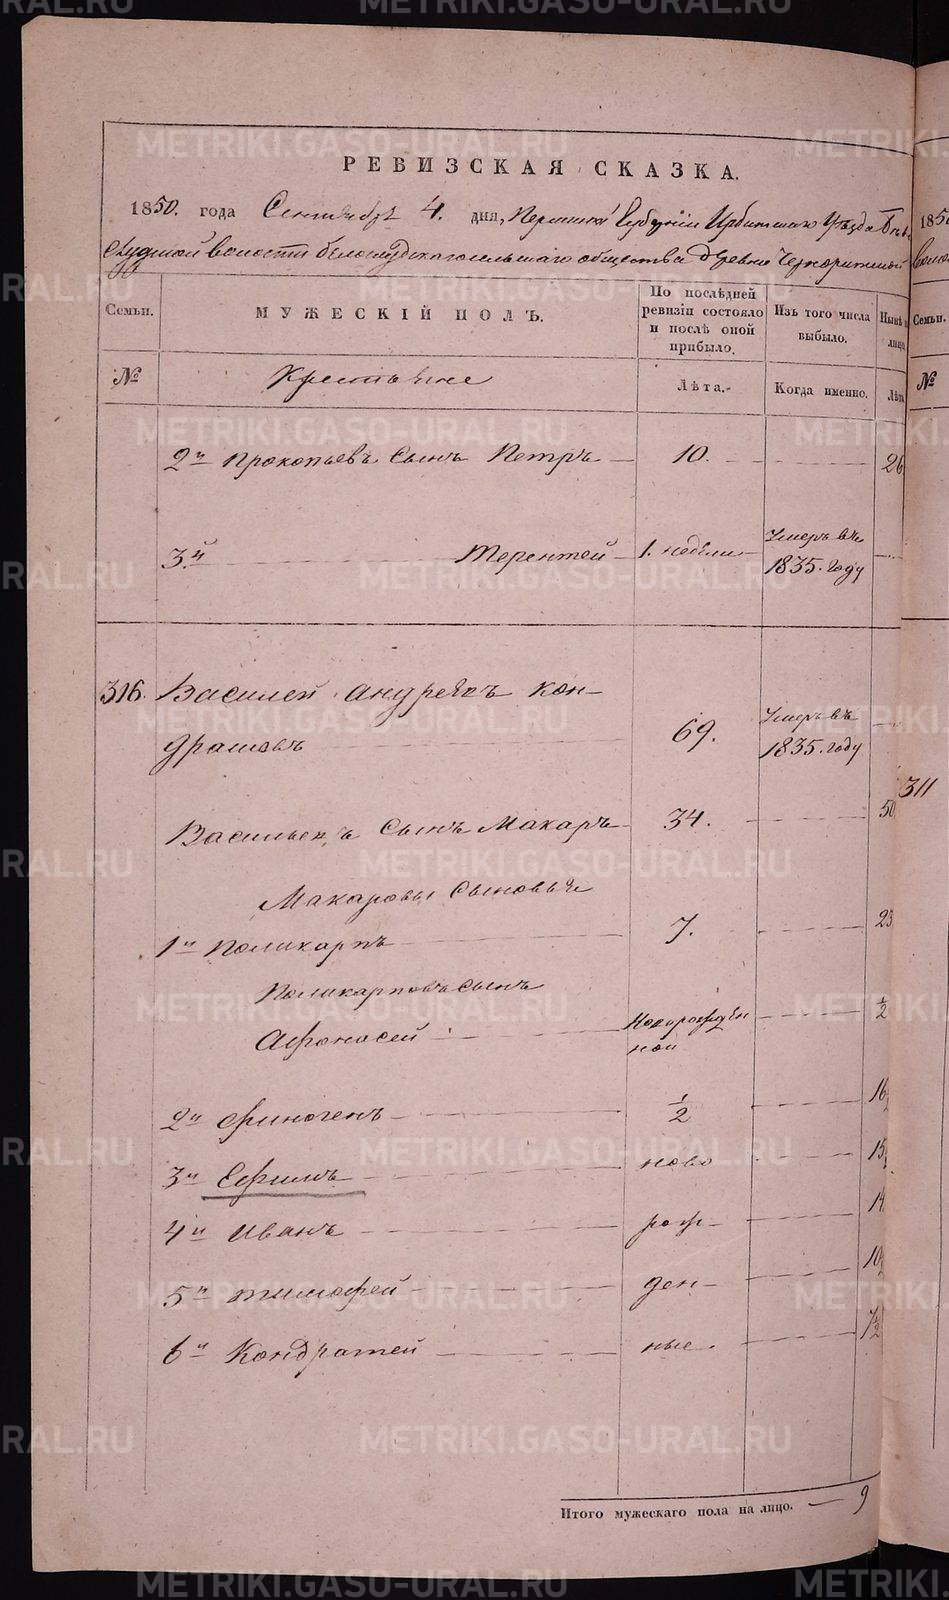 РЕВИЗСКАЯ СКАЗКА.
1850. года Сентября 4. дня, Пермской Губернии Ирбитскаго Уезда Бело
слудской волости белослудскаго сельскаго общества деревни
Семьи.
МУЖЕСКІЙ ПОЛЪ.
По послѣдней ревизіи состояло и послѣ оной прибыло.
Изъ того числа выбыло.
Нынѣ
лицо
№
Крестьяне
Лѣта.
Когда именно.
Лѣт
2й Прокопьевъ Сынъ Петръ 10. 26
3.й Терентей 1. недели Умеръ въ 1835. году
316. Василей Андреевъ Кон-
драшовъ 69. Умеръ въ 1835. году
Васильевъ Сынъ Макаръ 34. 50
Макаровы Сыновья
1й Поликарпъ 7. 23
Поликарповъ Сынъ
Афонасей Новорожден
ной 1/2
2й Финогенъ 1/2 16
3й Ефимъ ново 15
4й Иванъ рож- 14
5й Тимофей ден- 10
6й Кондратей ные. 7 1/2
Итого мужескаго пола на лицо. — 9
185
Семьи.
№
311
METRIKI.GASO-URAL.RU